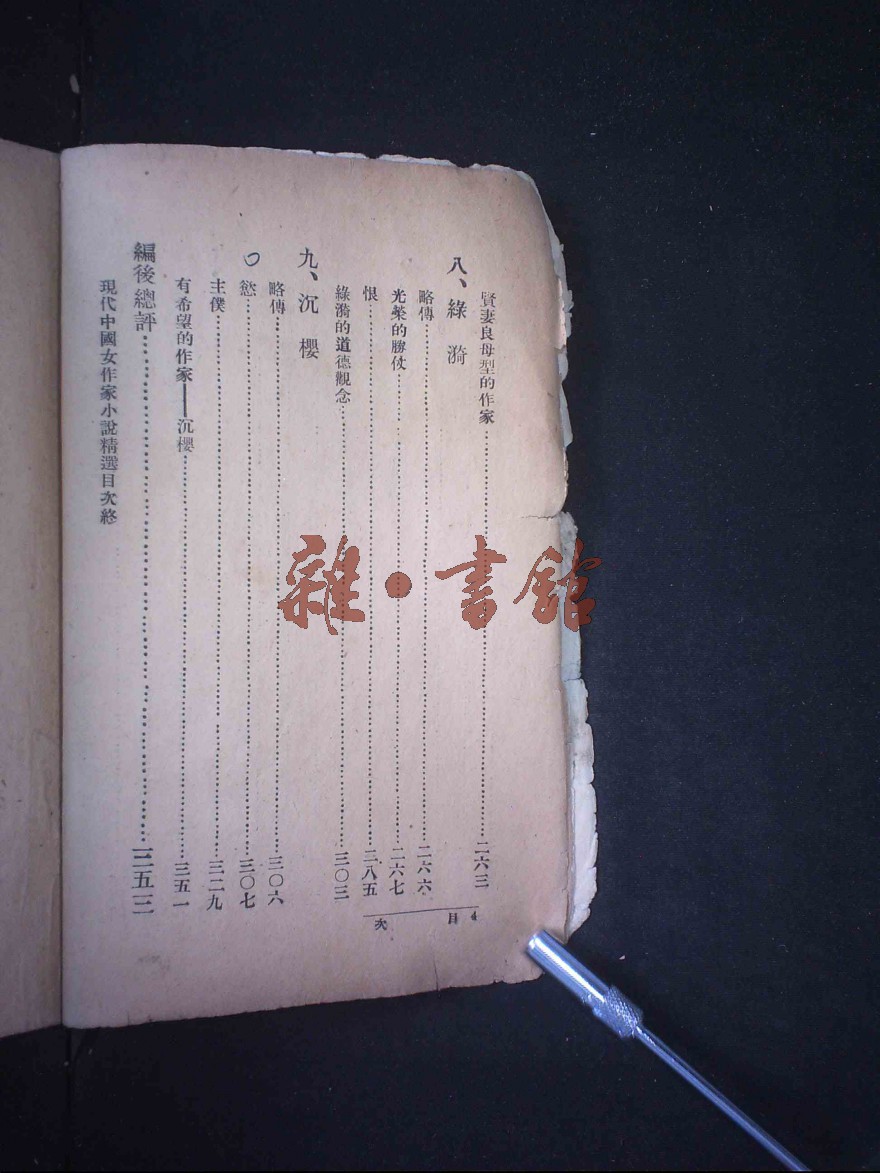 賢妻良母型的作家……二六三
八、綠漪
略傳……二六六
光榮的勝仗……二六七
恨……二八五
綠漪的道德觀念……三〇三
九、沉櫻
略傳……三〇六
慾……三〇七
主僕……三二九
有希望的作家——沉櫻……三五一
編後總評……三五三
現代中國女作家小說精選目次終
目次 4
雜·書館